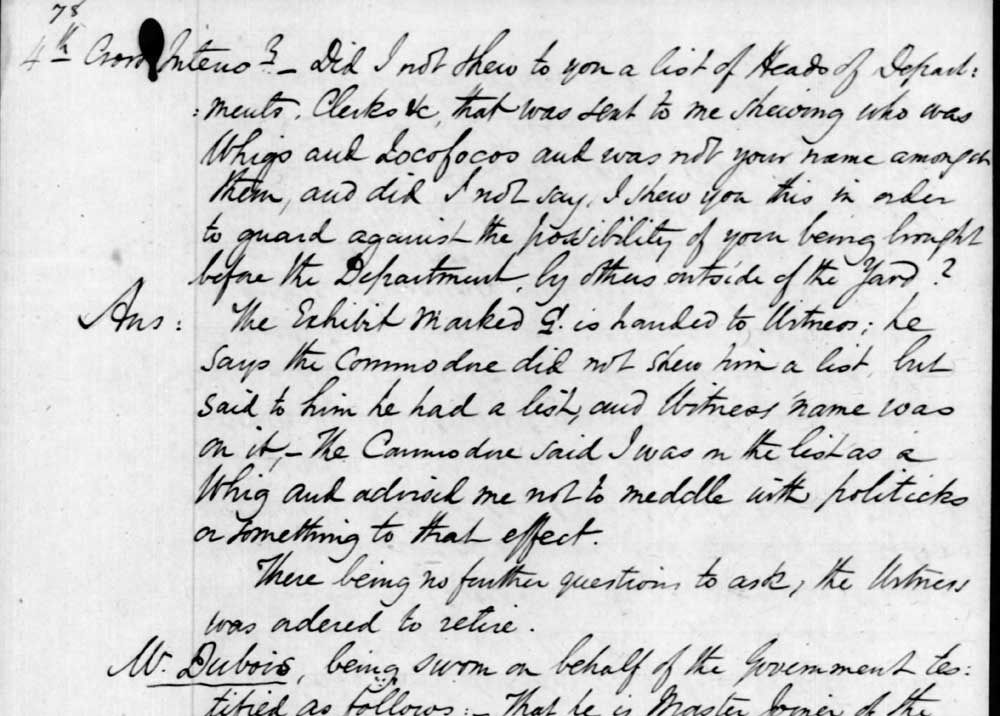 78
4th Cross Intero? – Did I not shew to you a list of Heads of Depart:
:ments, Clerks &c, that was sent to me shewing who was
Whigs and Locofocos and was not your name amongst
them, and did I not say, I shew you this in order
to guard against the possibility of your being brought
before the Department, by others outside of the Yard?
Ans: The Exhibit marked G. is handed to Witness; he
says the Commodore did not shew him a list, but
said to him he had a list, and Witness' name was
on it, – the Commodore said I was on the list as a
Whig and advised me not to meddle with politicks
or something to that effect.
There being no further questions to ask, the Witness
was ordered to retire.
Mr. Dubois, being sworn on behalf of the Government tes:
tified as follows: – That he is Master Joiner of the